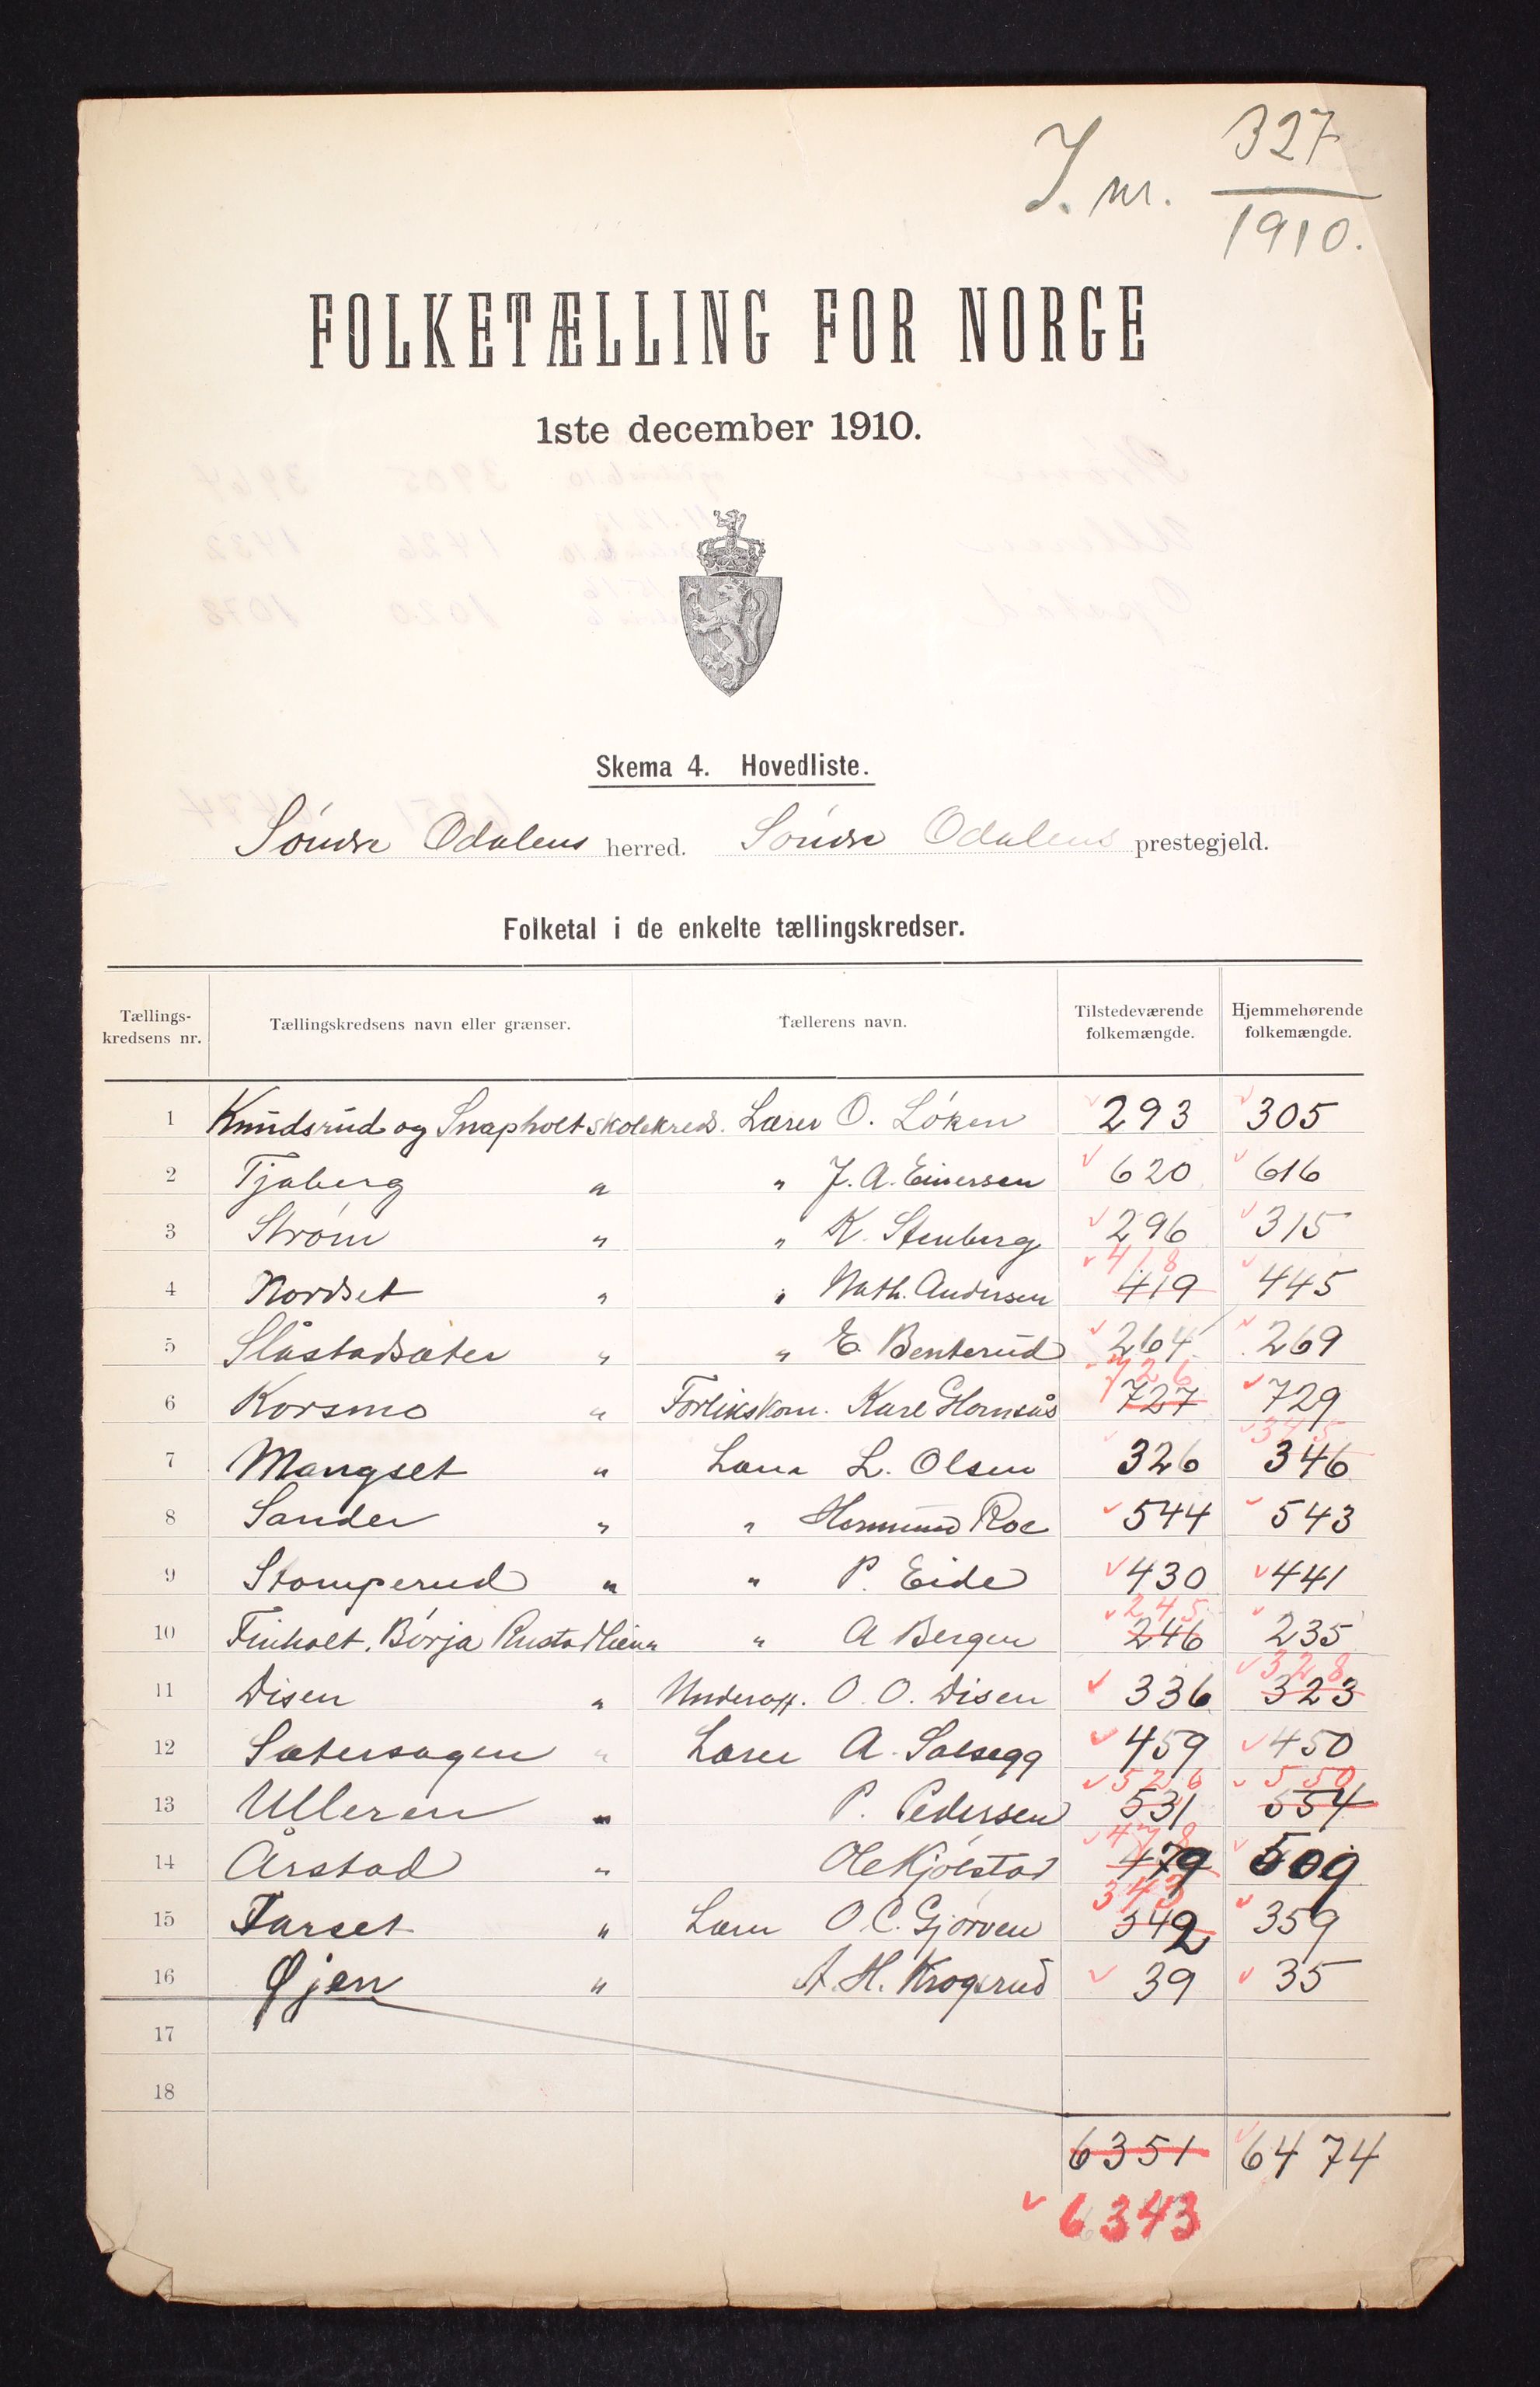 J. nr. 327
1910.
FOLKETÆLLING FOR NORGE
1ste december 1910.
Skema 4. Hovedliste.
Søndre Odalens herred. Søndre Odalens prestegjeld.
Folketal i de enkelte tællingskredser.
Tællings-kredsens nr. Tællingskredsens navn eller grænser. Tællerens navn. Tilstedeværende folkemængde. Hjemmehørende folkemængde.
1 Knudsrud og Snapholt skolekreds. Lærer O. Løken 293 305
2 Tjaberg " " J. A. Einersen 620 616
3 Strøm " " K. Stenberg 296 315
418
4 Nordset " " Nath. Andersen 419 445
5 Slåstadsæter " " E. Benterud 264 269
726
6 Korsmo " Forlikskom. Karl 727 729
345
7 Mangset " Lærer L. Olsen 326 346
8 Sander " " Roe 544 543
9 Stomperud " " P. Eide 430 441
245
10 Finholt, Børja " A Bergen 246 235
328
11 Disen " Underoff. O. O. Disen 336 323
12 Sætersagen " Lærer A. Salsegg 459 450
526 550
13 Ulleren " P. Pedersen 531 554
478
14 Årstad " Ole Kjølstad 479 509
343
15 Farset " Lærer O. C. Gjørven 342 359
16 Øjen " A. H. Krogsrud 39 35
17
18
6351 6474
6343